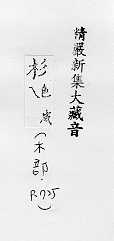 精嚴新集大藏音
杉色咸(木部.
P.725)